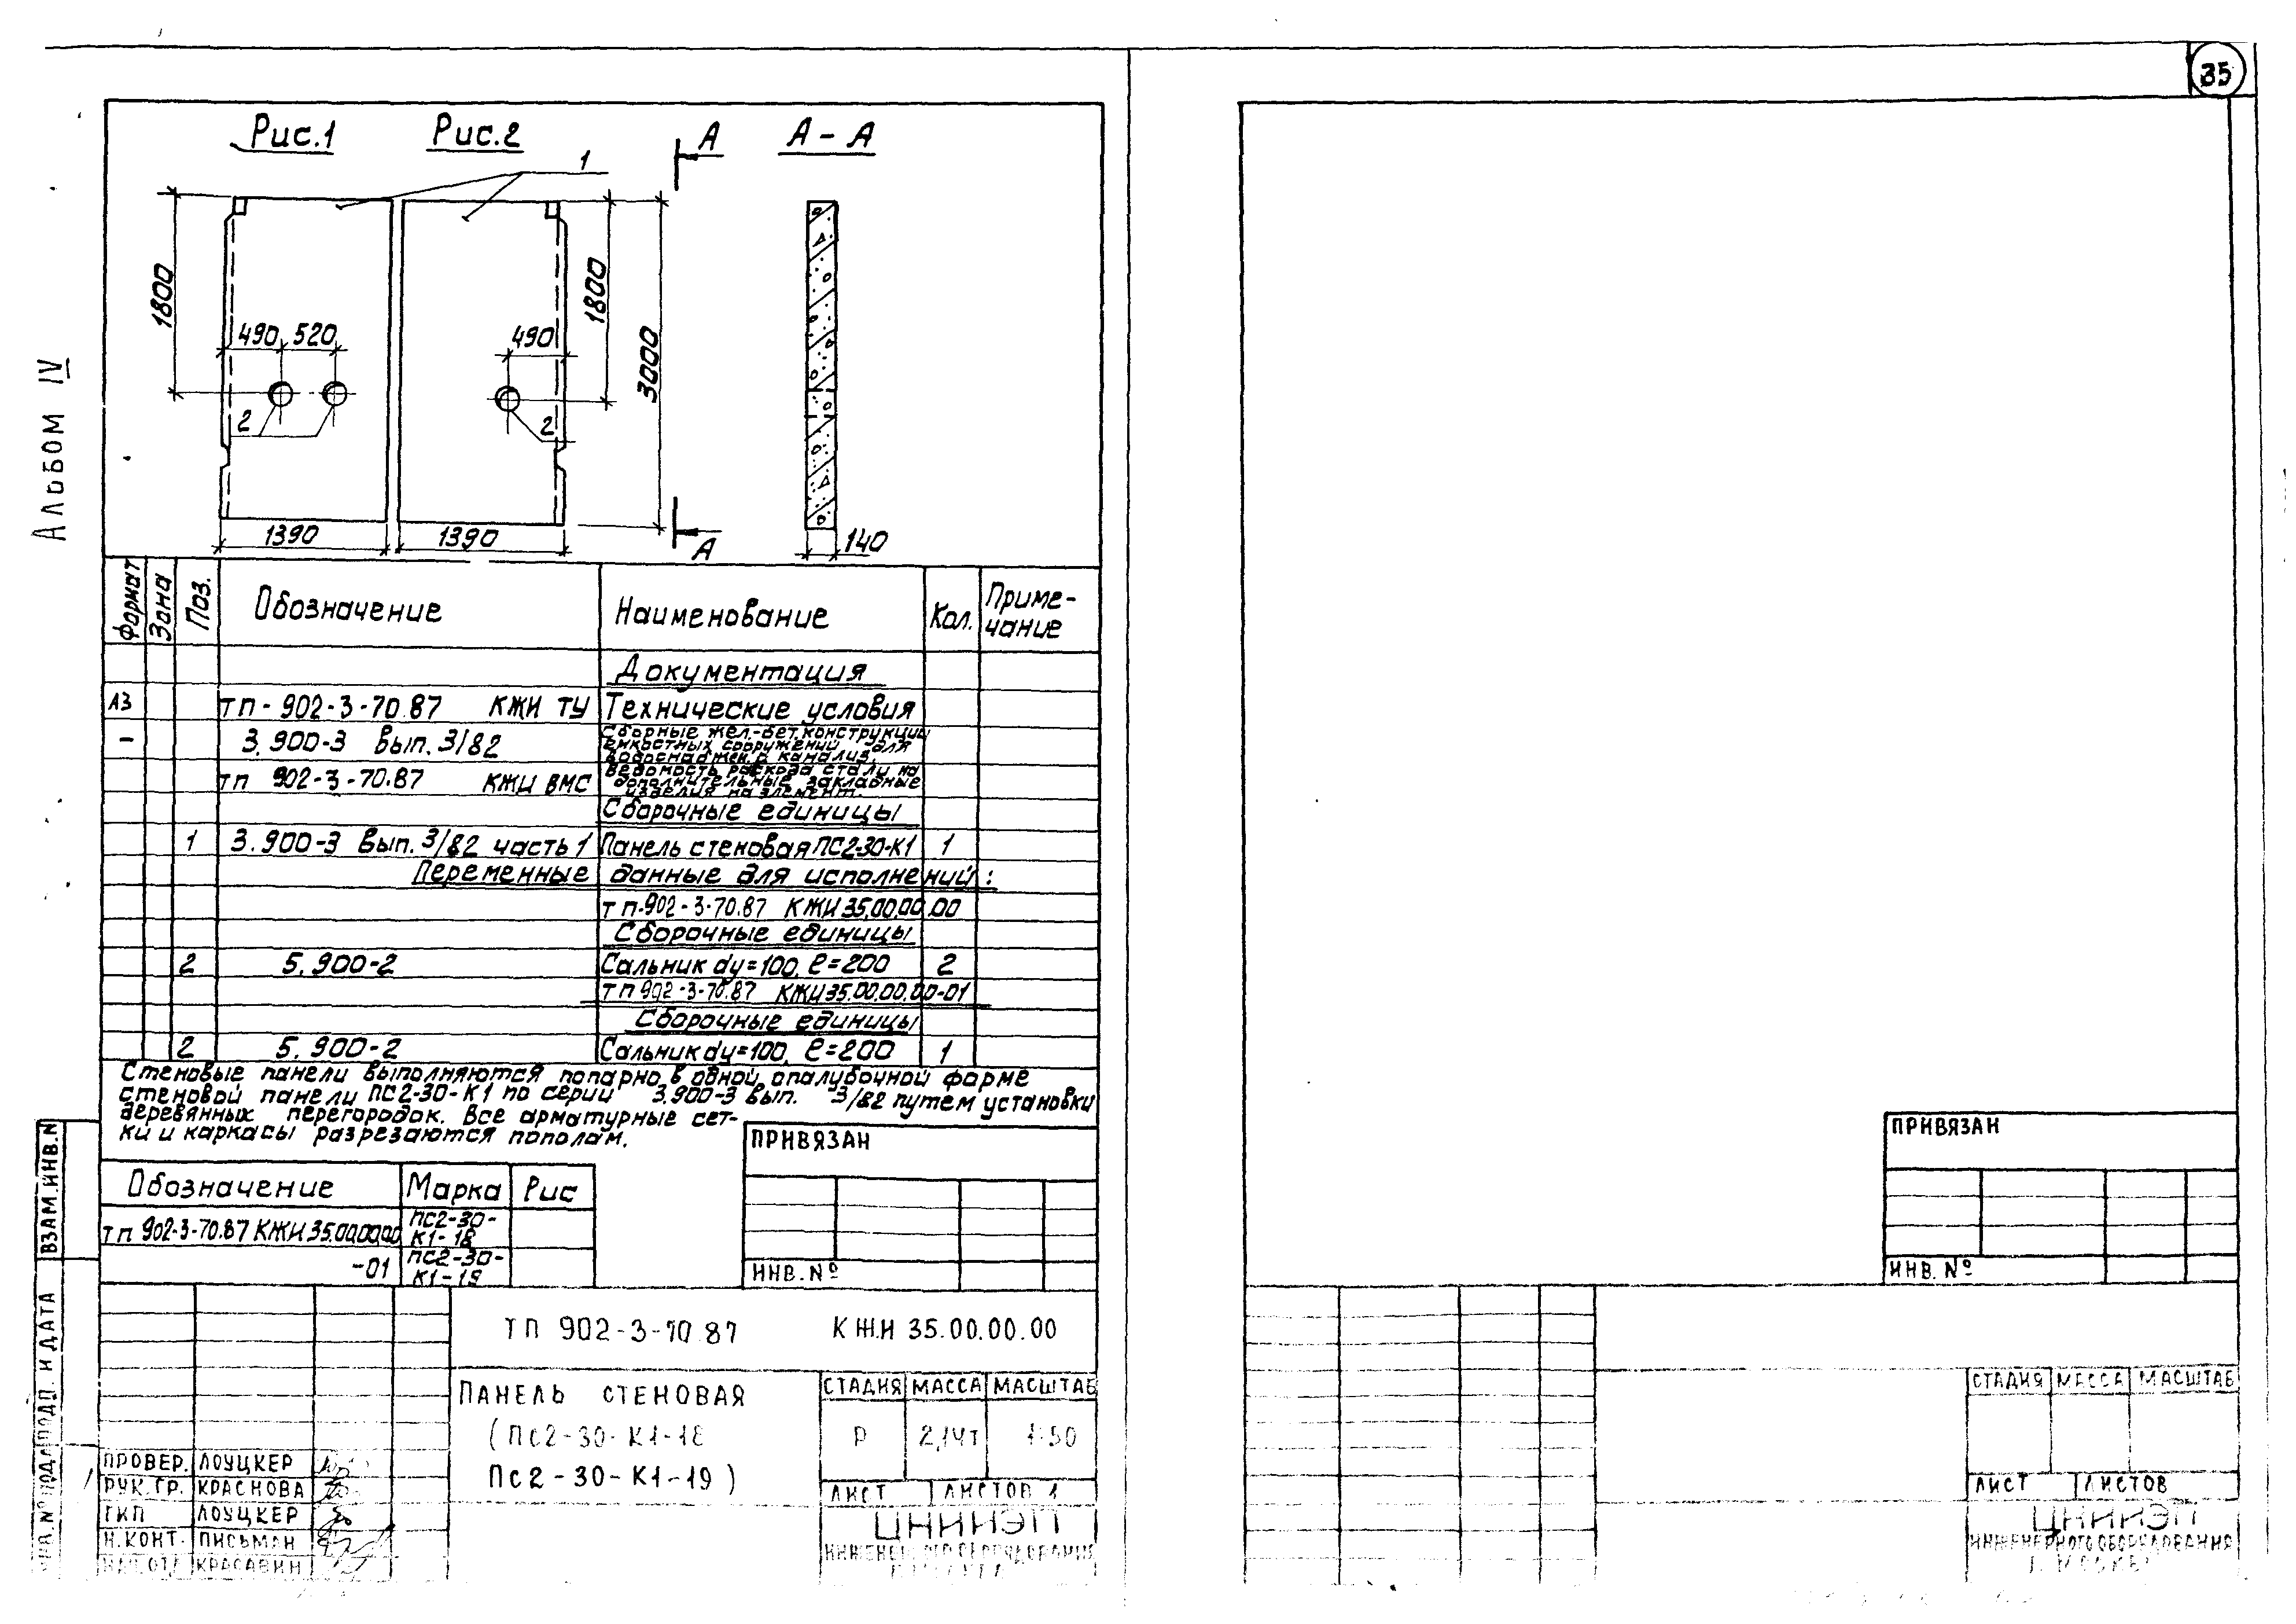 35
Альбом IV
Рис.1
Рис.2
А
А - А
1
1800
490
520
2
1390
1800
490
2
1390
3000
А
140
Формат
Зона
Поз.
Обозначение
Наименование
Кол.
Приме-
чание
Документация
А3
тп- 902-3-70.87 КЖИ ТУ
Технические условия
-
3.900-3 Вып. 3/82
Сборные жел.-бет. конструкции
емкостных сооружений для
водоснабжен. и канализ.
тп 902-3-70.87 КЖИ ВМС
Ведомость расхода стали на
дополнительные закладные
изделия на элемент.
Сборочные единицы
1
3.900-3 Вып. 3/82 часть 1
Панель стеновая ПС2-30-К1
1
Переменные данные для исполнений:
тп-902-3-70.87 КЖИ 35.00.00.00
Сборочные единицы
2
5.900-2
Сальник dу=100, ℓ=200
2
тп 902-3-70.87 КЖИ 35.00.00.00-01
Сборочные единицы
2
5.900-2
Сальник dу=100, ℓ=200
1
Стеновые панели выполняются попарно в одной опалубочной форме
стеновой панели ПС2-30-К1 по серии 3.900-3 вып. 3/82 путем установки
деревянных перегородок. Все арматурные сет-
ки и каркасы разрезаются пополам.
ПРИВЯЗАН
ИНВ. №
Обозначение
Марка
Рис
тп 902-3-70.87 КЖИ 35.00.00.00
ПС2-30-
К1-18
-01
ПС2-30-
К1-19
ВЗАМ. ИНВ. N
ПОДП. И ДАТА
ИНВ. № ПОДЛ
ТП 902-3-70.87
КЖИ 35.00.00.00
ПАНЕЛЬ СТЕНОВАЯ
(ПС2-30-К1-18
ПС2-30-К1-19)
СТАДИЯ
МАССА
МАСШТАБ
Р
2,14т
1:50
ЛИСТ
ЛИСТОВ 1
ПРОВЕР. ЛОУЦКЕР
РУК. ГР. КРАСНОВА
ГИП ЛОУЦКЕР
Н. КОНТ. ПИСЬМАН
НАЧ. ОТД КРАСАВИН
ЦНИИЭП
ИНЖЕНЕРНОГО ОБОРУДОВАНИЯ
ПРИВЯЗАН
ИНВ. №
СТАДИЯ
МАССА
МАСШТАБ
ЛИСТ
ЛИСТОВ
ЦНИИЭП
ИНЖЕНЕРНОГО ОБОРУДОВАНИЯ
Г. МОСКВА